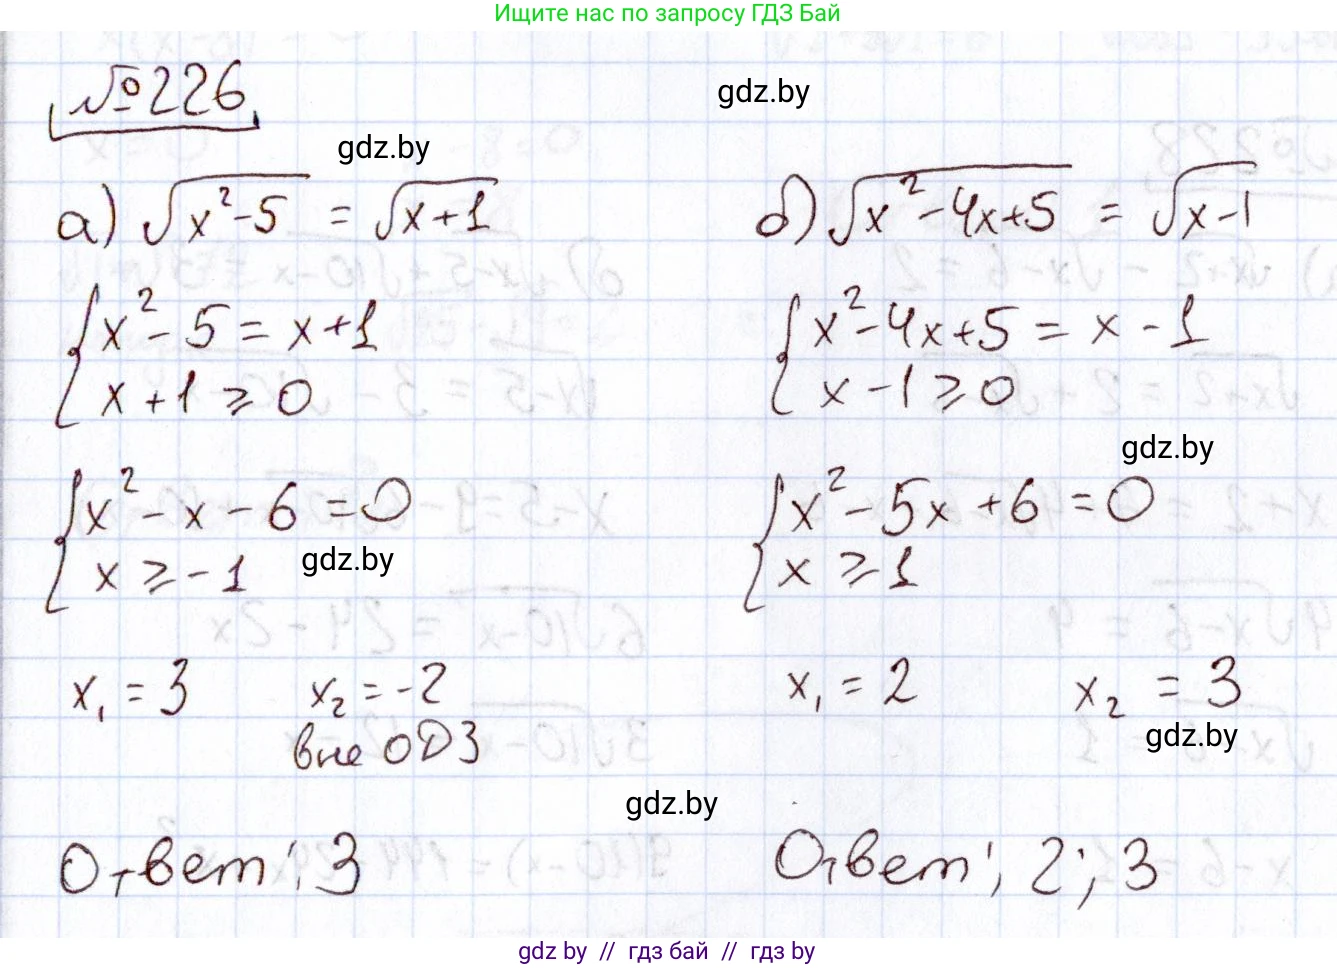 Ищите нас по запросу ГДЗ Бай
№226
gdz.by
gdz.by
а) √(x²-5) = √(x+1)
{x²-5 = x+1
x+1 ⩾ 0
{x²-x-6=0
x ⩾ -1
gdz.by
x₁ = 3 x₂ = -2
вне ОДЗ
Ответ: 3
б) √(x²-4x+5) = √(x-1)
{x²-4x+5 = x-1
x-1 ⩾ 0
gdz.by
{x²-5x+6=0
x ⩾ 1
x₁ = 2 x₂ = 3
gdz.by
gdz.by
Ответ: 2; 3
gdz by // гдз бай // гдз by